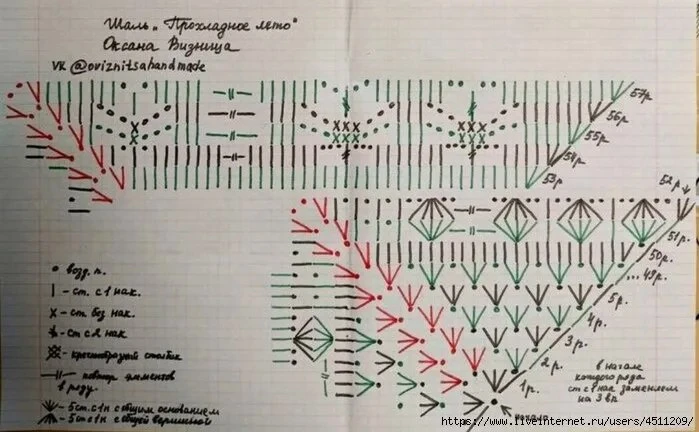 Шаль „Прохладное лето"
Оксана Визница
VK @oviznitsahandmade
57р.
56р.
55р.
54р.
53р.
52р.
51р.
50р.
...49р.
5р.
4р.
3р.
2р.
1р.
• возд. п.
| - ст. с 1 нак.
x - ст. без нак.
- ст с 2 нак
- крестообразный столбик
-//- повтор элементов
в ряду
- 5 ст. с 1 н с общим основанием
- 5 ст с 1 н с общей вершиной
в начале
каждого ряда
ст с 1 нак заменяем
на 3 вп
начало
https://www.liveinternet.ru/users/4511209/